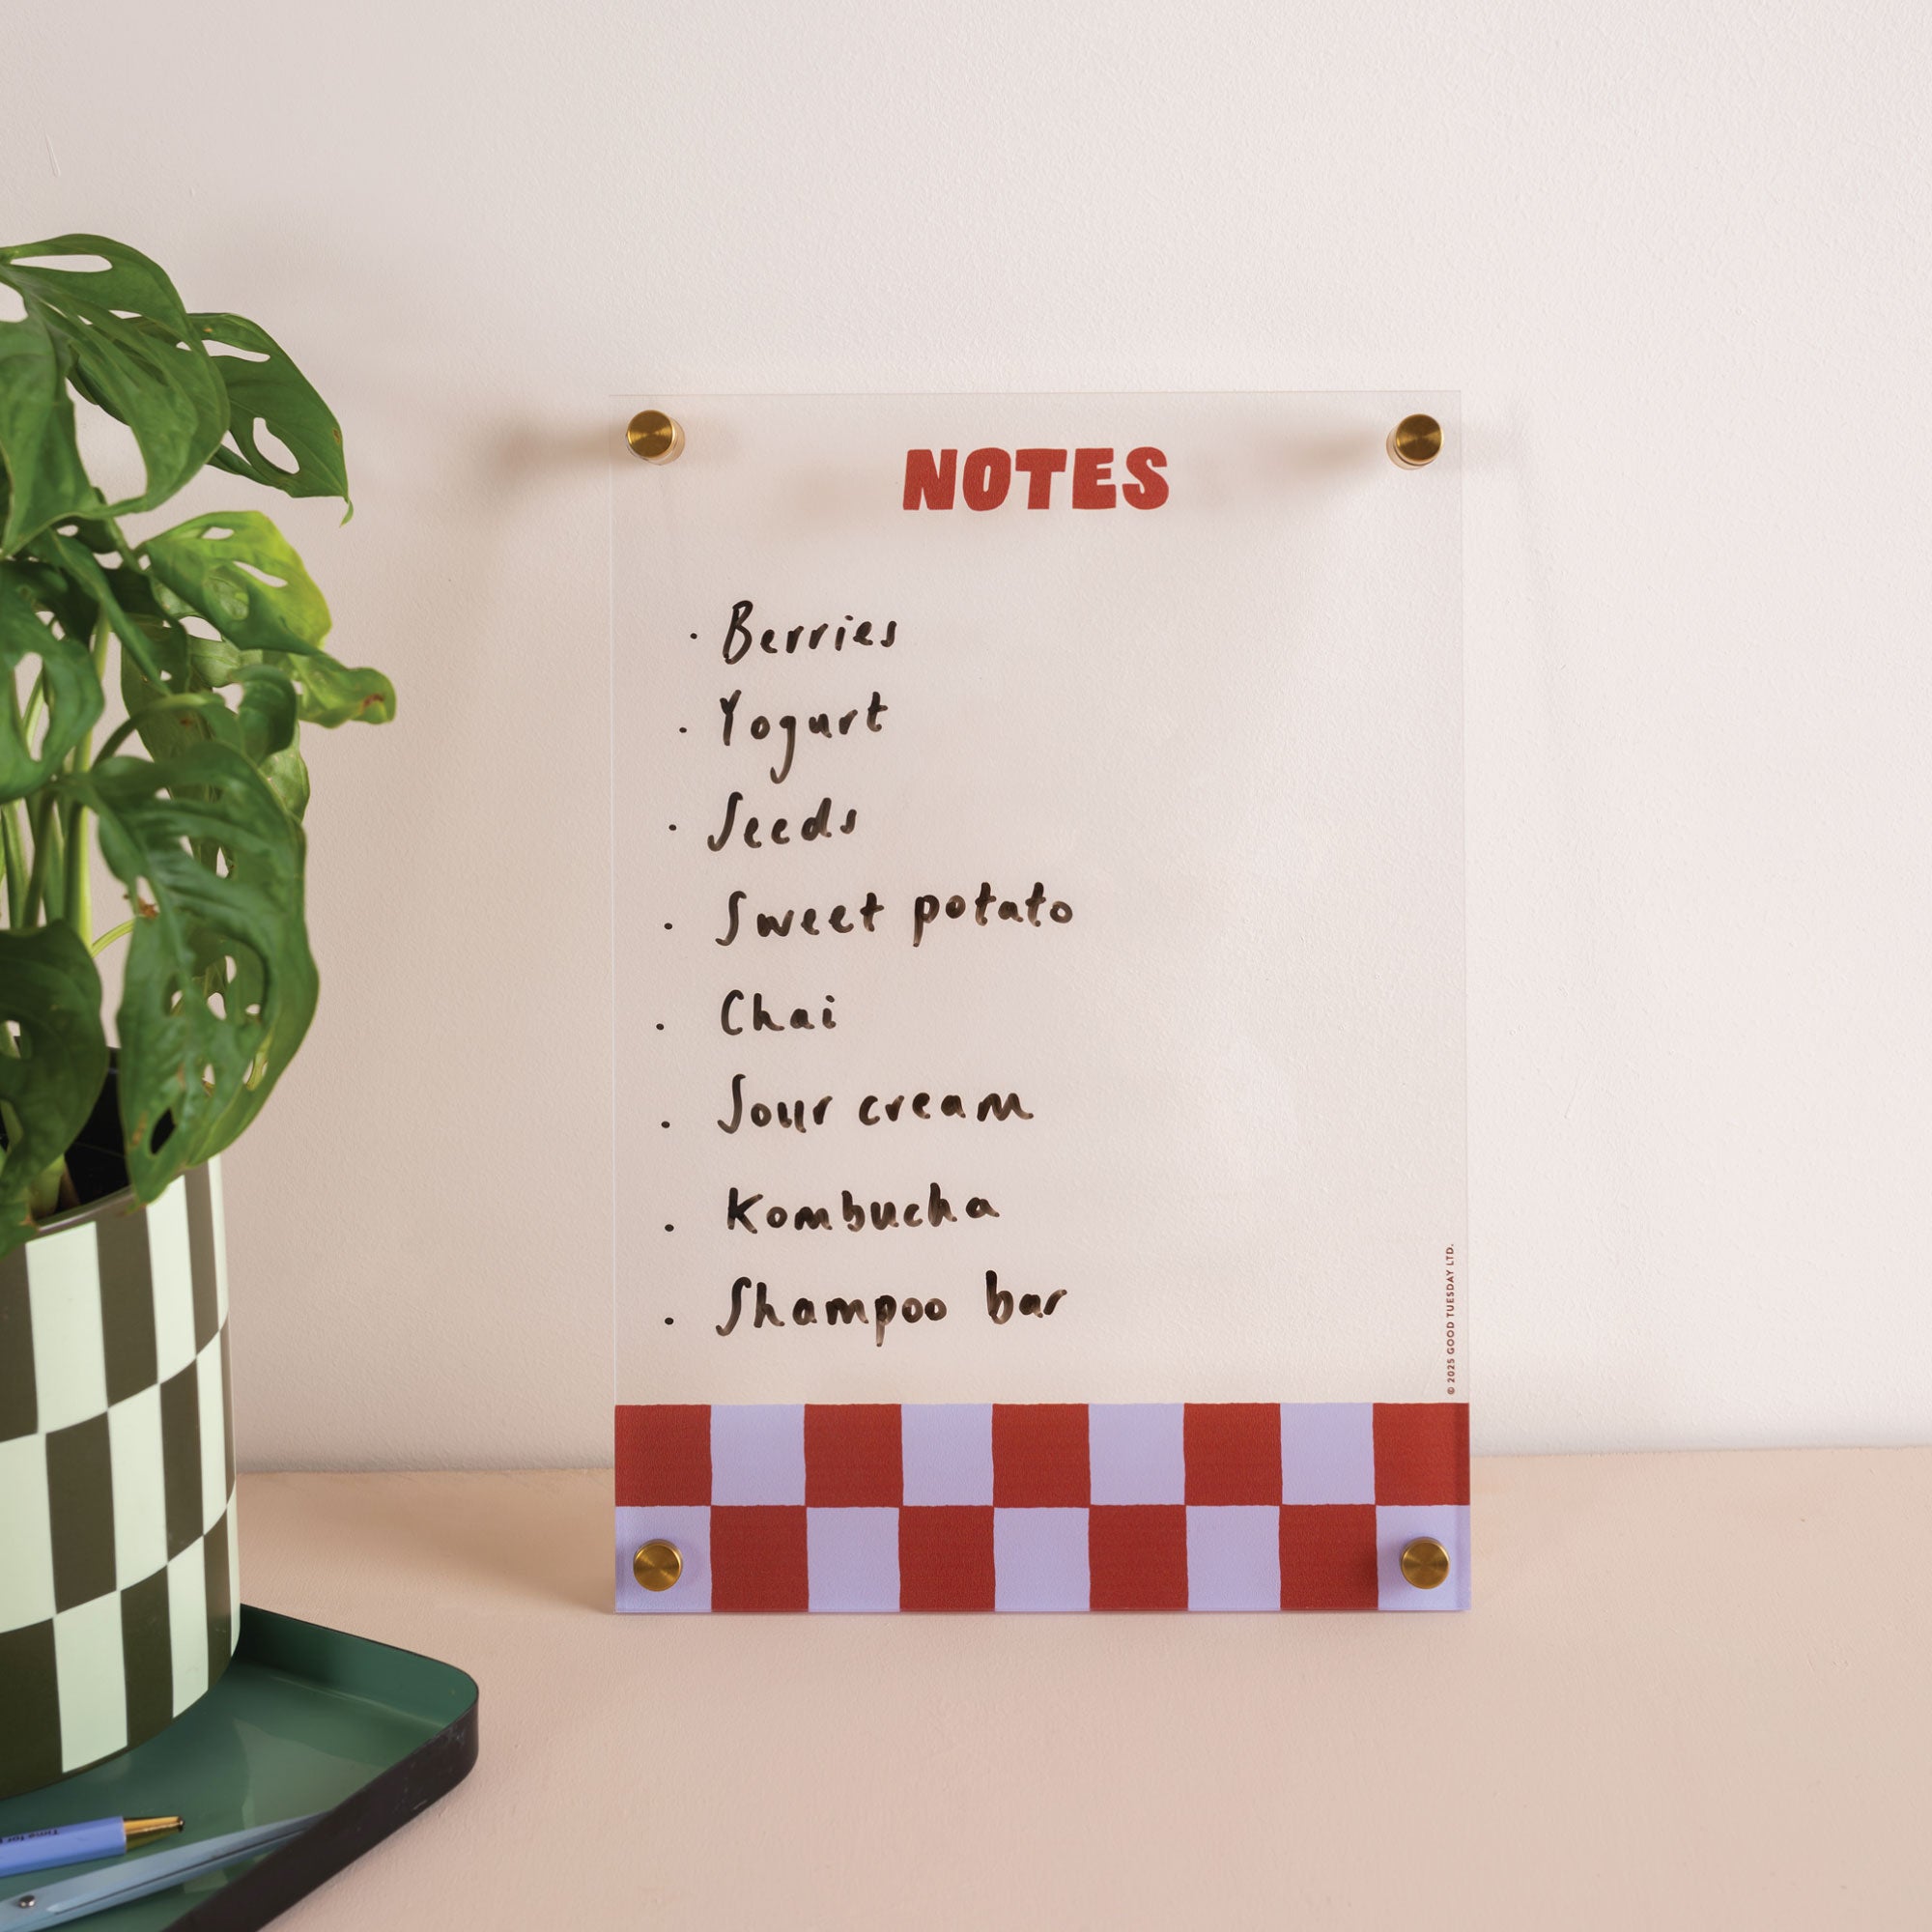 NOTES
· Berries
· Yogurt
· Seeds
· Sweet potato
· Chai
· Sour cream
· Kombucha
· Shampoo bar
© 2025 GOOD TUESDAY LTD.
Time for